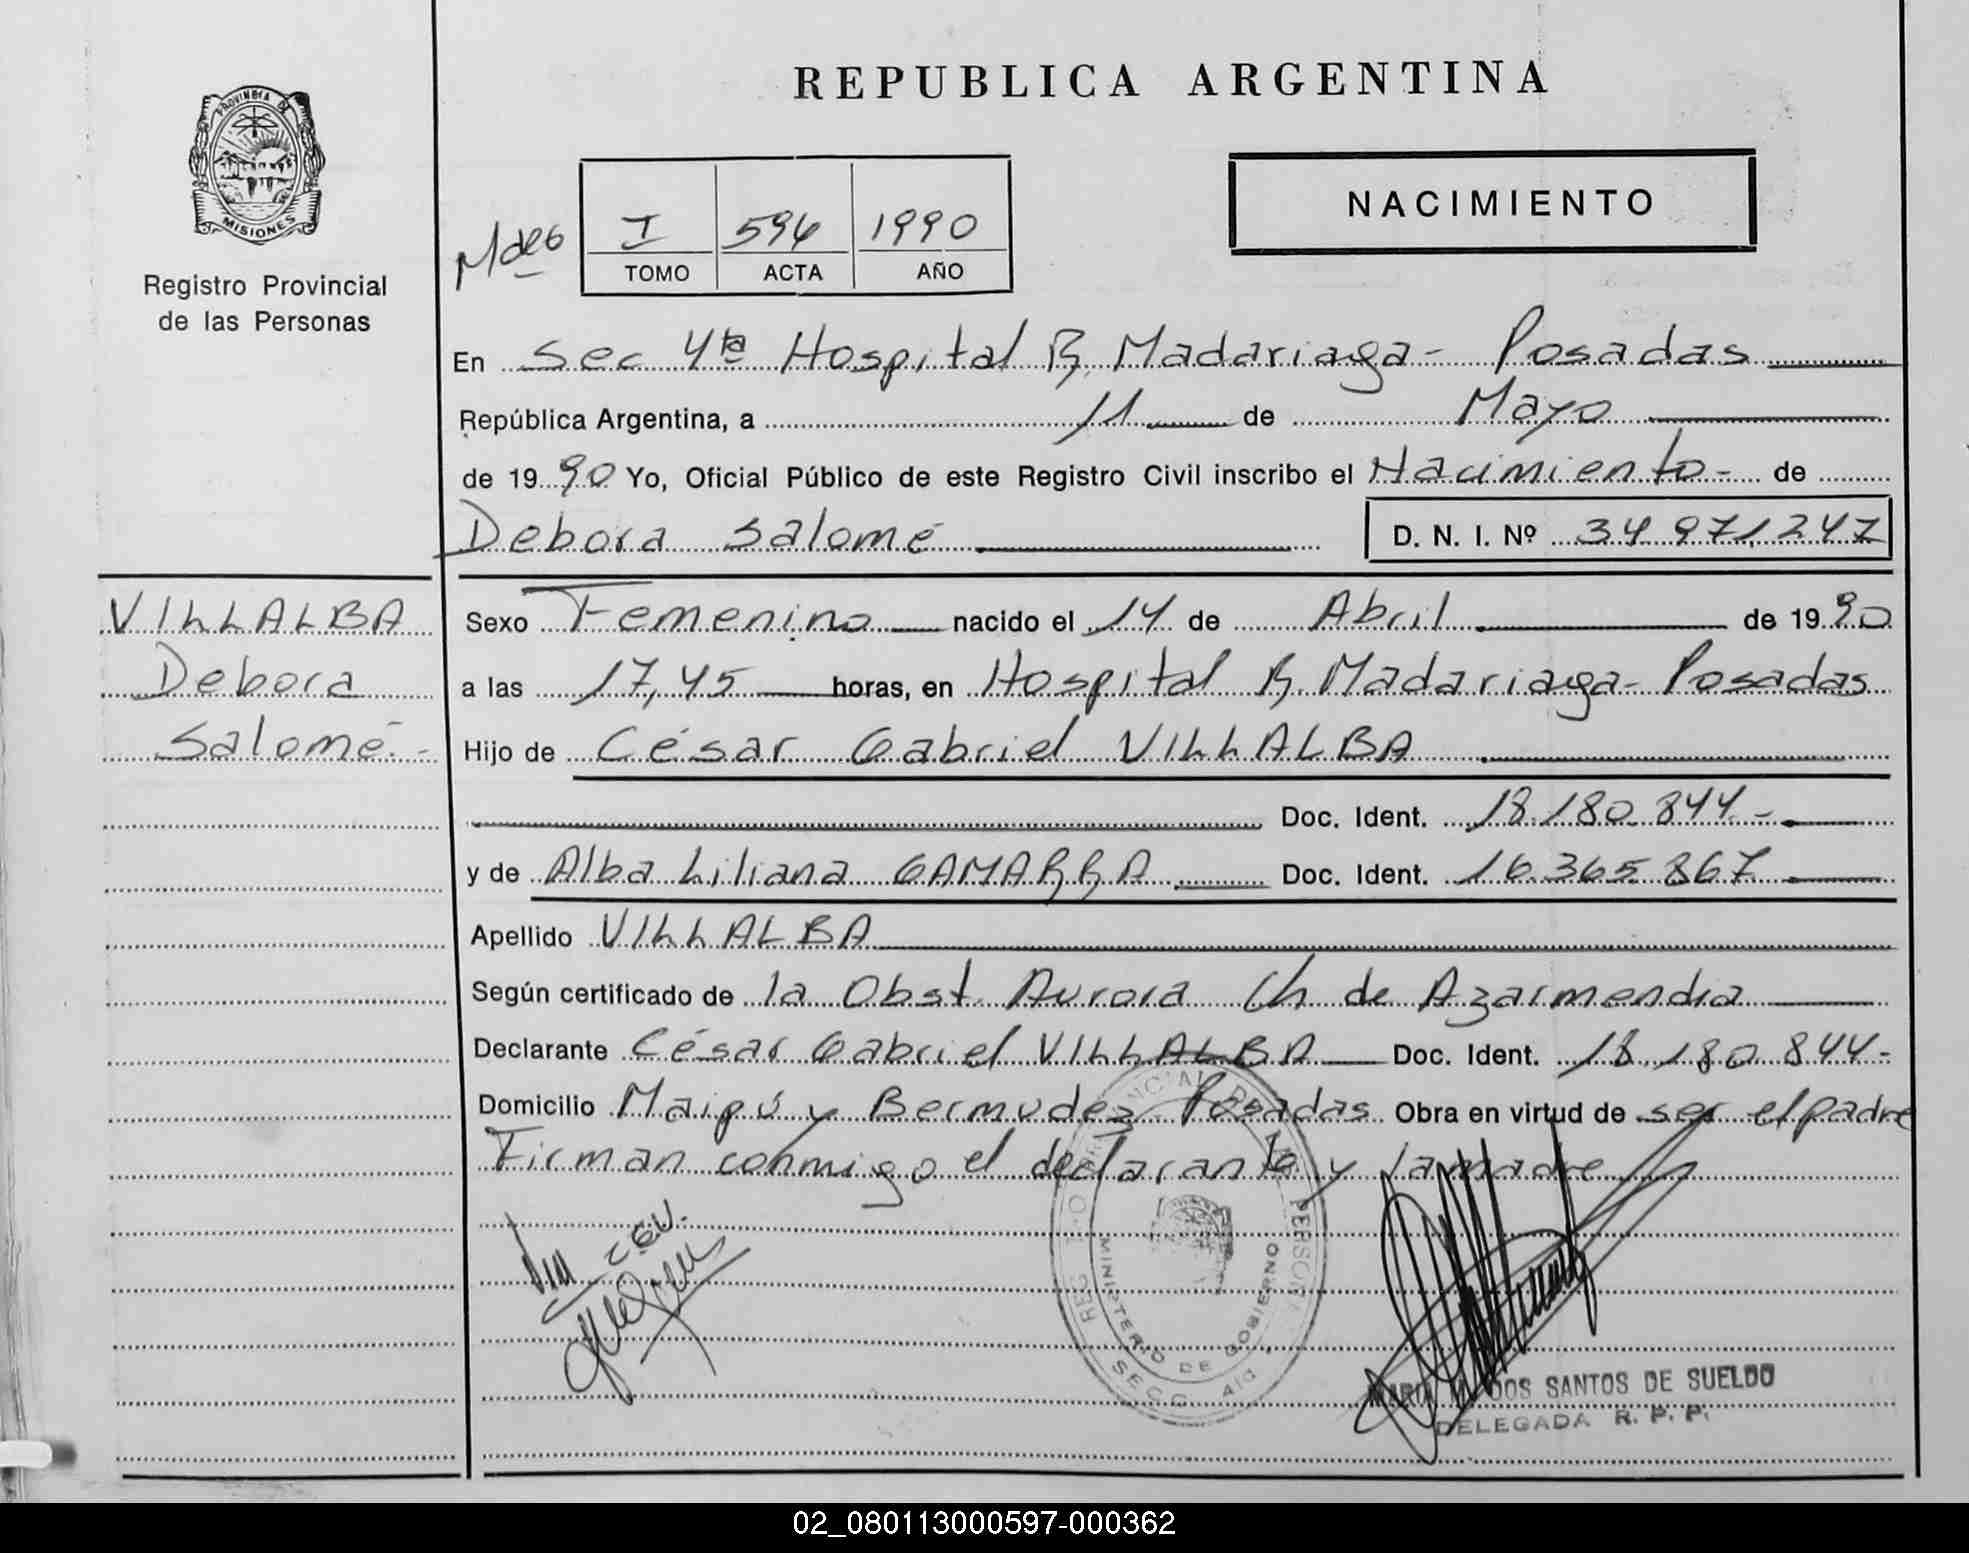 REPUBLICA ARGENTINA
PROVINCIA DE
MISIONES
Registro Provincial
de las Personas
NACIMIENTO
I 594 1990
TOMO ACTA AÑO
En Sec 4ta Hospital R. Madariaga - Posadas
República Argentina, a 11 de Mayo
de 1990 Yo, Oficial Público de este Registro Civil inscribo el Nacimiento - de
Debora Salomé D. N. I. Nº 34 971.247
VILLALBA
Debora
Salomé.-
Sexo Femenino nacido el 14 de Abril de 1990
a las 17,45 horas, en Hospital R. Madariaga - Posadas
Hijo de César Gabriel VILLALBA
Doc. Ident. 18.180.844.-
y de Alba Liliana GAMARRA Doc. Ident. 16.365.867
Apellido VILLALBA
Según certificado de la Obst. Aurora Ch de Azarmendia
Declarante César Gabriel VILLALBA Doc. Ident. 18.180.844-
Domicilio Maipú y Bermudez Posadas Obra en virtud de ser el padre
Firman conmigo el declarante y la madre
MINISTERIO DE GOBIERNO
SECC. 4ta
MARIA M. DOS SANTOS DE SUELDO
DELEGADA R. P. P.
02_080113000597-000362